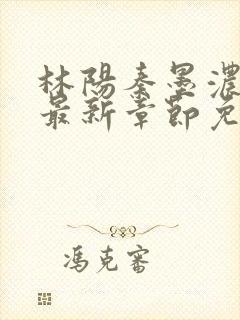 林陽秦墨濃
最新章節免
馮克審